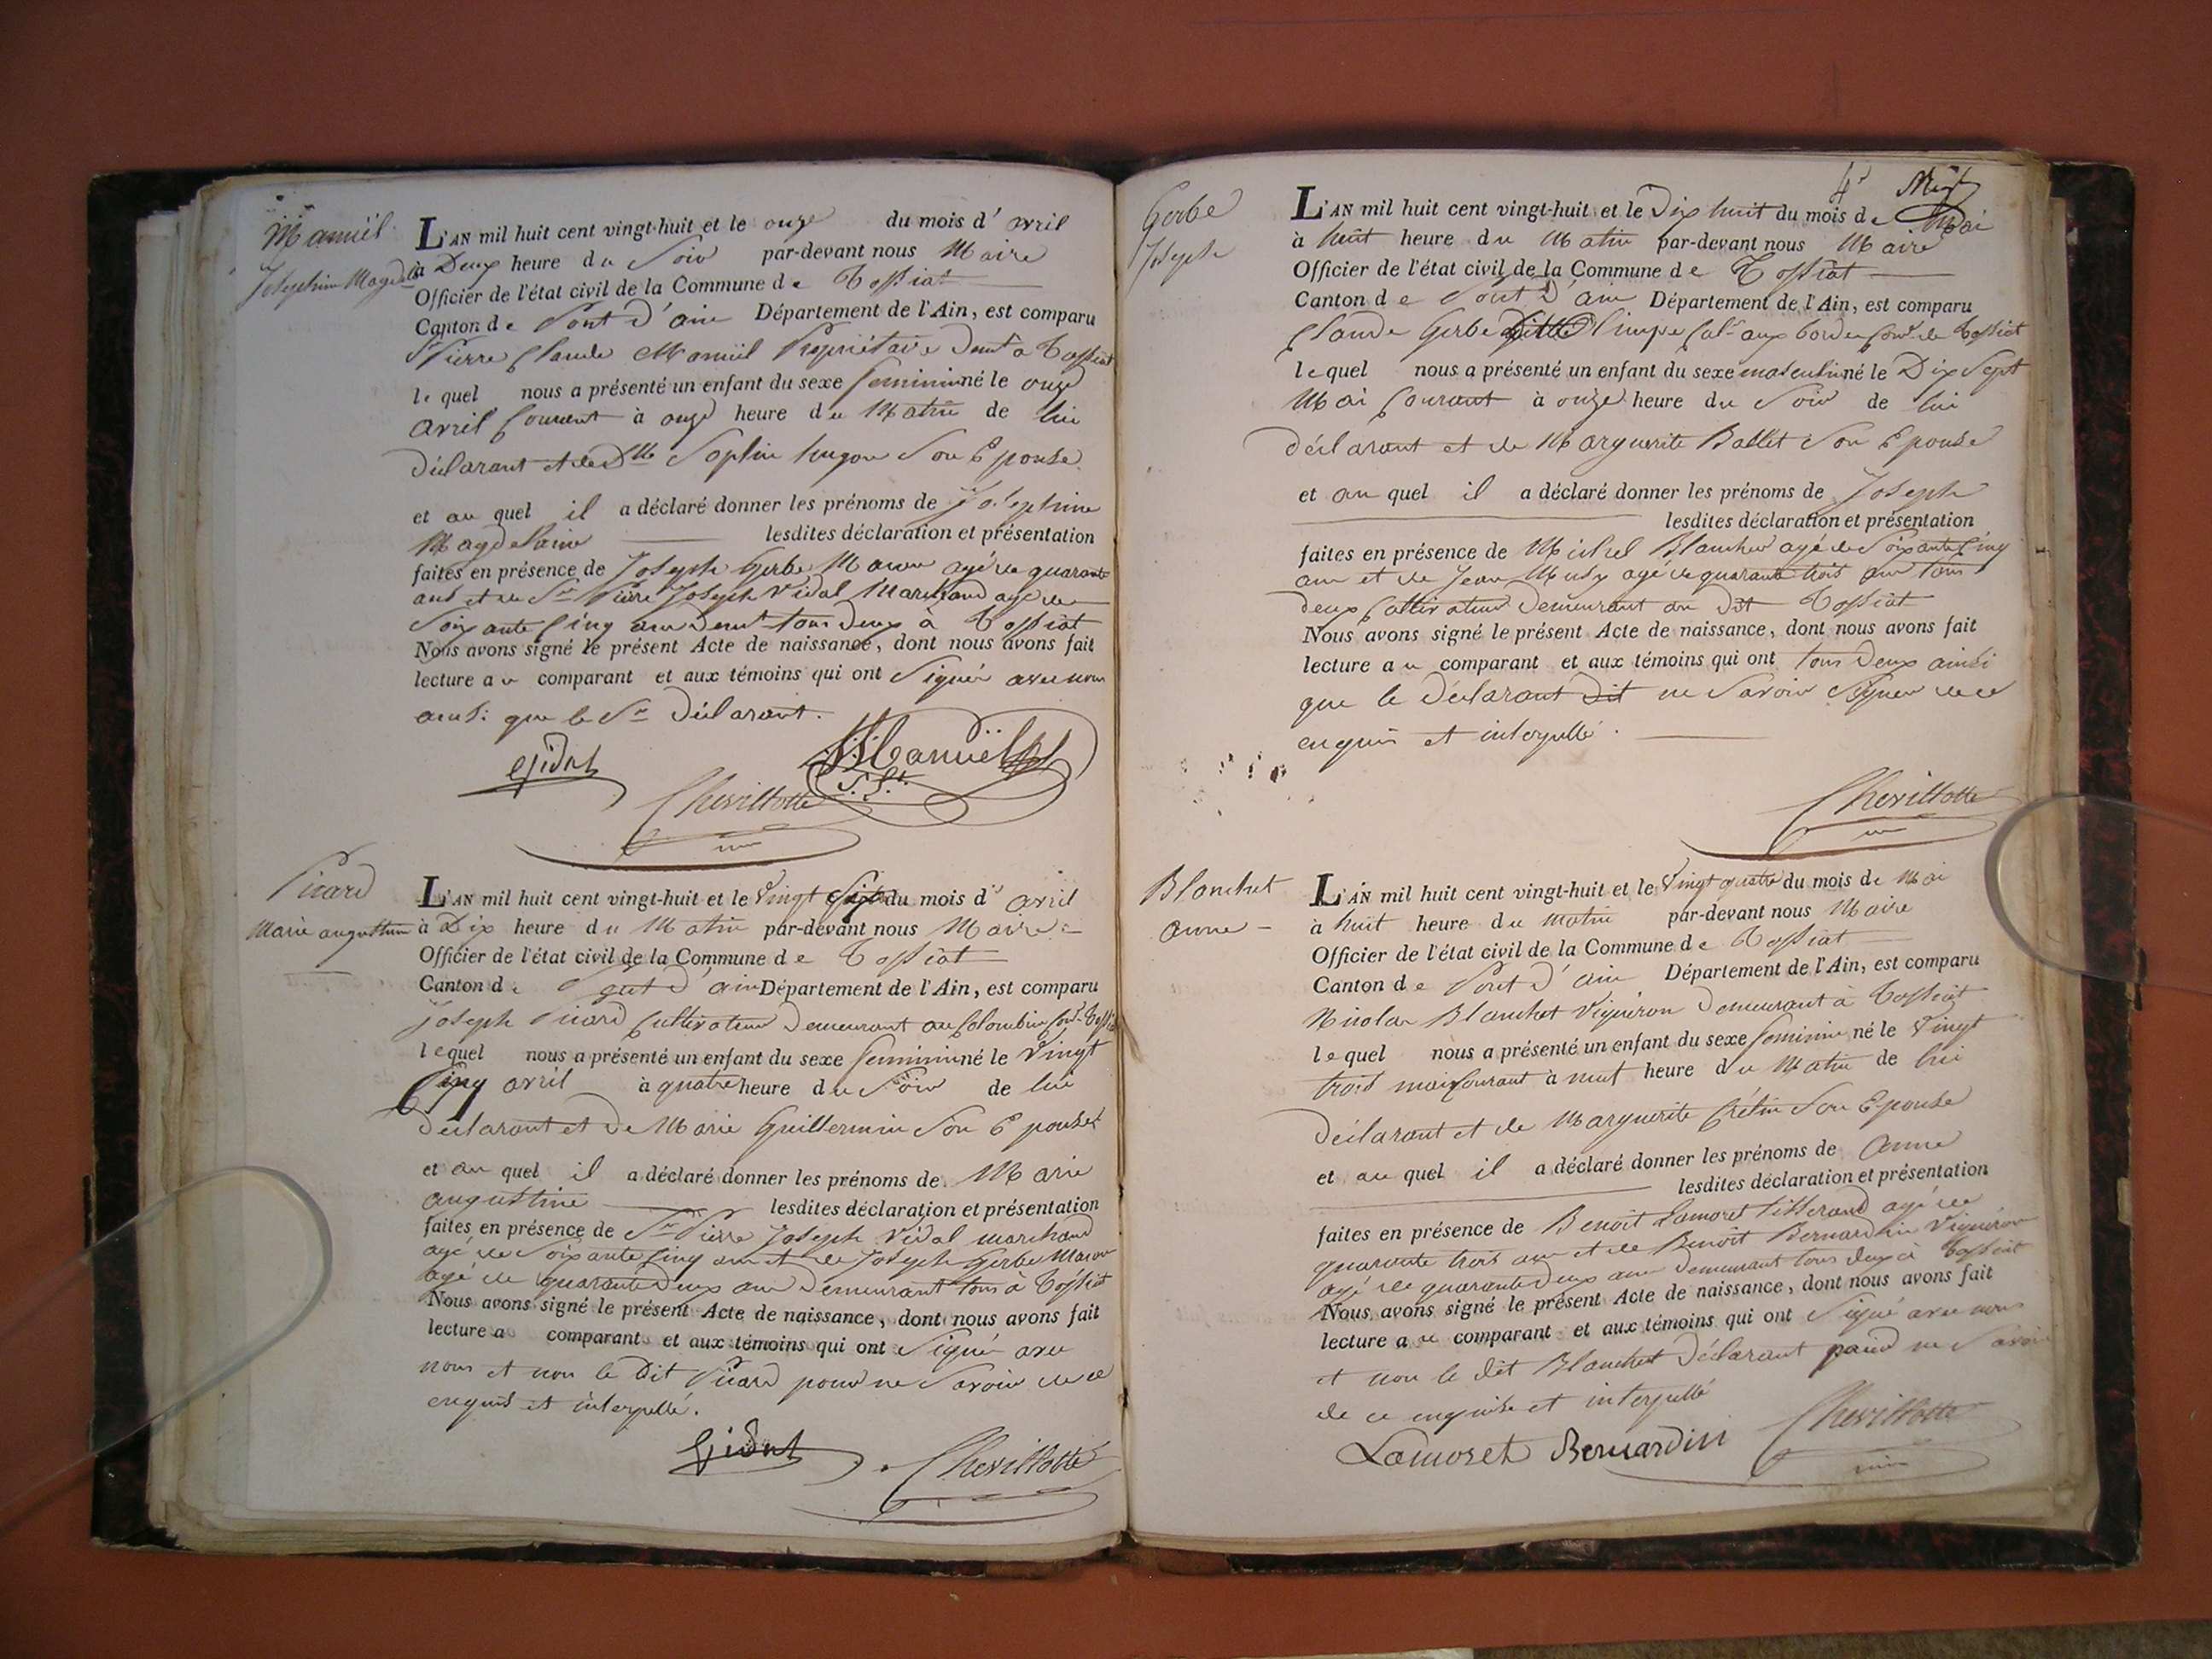 Manuël
Josephine Magdelaine
L'AN mil huit cent vingt-huit et le onze du mois d'avril
à Deux heure du Soir par-devant nous Maire
Officier de l'état civil de la Commune de Tossiat
Canton de Pont d'ain Département de l'Ain, est comparu
Sr Pierre Claude Manuël Propriétaire demt à Tossiat
lequel nous a présenté un enfant du sexe feminin né le onze
avril Courant à onze heure du Matin de lui
Déclarant et de Sophie hugon Son Epouse
et au quel il a déclaré donner les prénoms de Josephine
Magdelaine lesdites déclaration et présentation
faites en présence de Joseph Gerbe Macon agé de quarante
ans et de Sr Pierre Joseph Vidal Marchand agé de
Soixante Cinq ans demt tous Deux à Tossiat
Nous avons signé le présent Acte de naissance, dont nous avons fait
lecture au comparant et aux témoins qui ont Signé avec nous
ainsi que le Sr Déclarant.
Manuël
Chevillotte
Picard
Marie augustine
L'AN mil huit cent vingt-huit et le Vingt Six du mois d'avril
à Dix heure du Matin par-devant nous Maire
Officier de l'état civil de la Commune de Tossiat
Canton de Pont d'ain Département de l'Ain, est comparu
Joseph Picard Cultivateur Demeurant au Colombier Tossiat
lequel nous a présenté un enfant du sexe feminin né le Vingt
Cinq avril à quatre heure du Soir de lui
Déclarant et De Marie Guillermin Son Epouse
et au quel il a déclaré donner les prénoms de Marie
augustine lesdites déclaration et présentation
faites en présence de Sr Pierre Joseph Vidal marchand
agé de Soixante Cinq ans et de Joseph Gerbe Macon
agé de quarante Deux ans Demeurant tous à Tossiat
Nous avons signé le présent Acte de naissance, dont nous avons fait
lecture a comparant et aux témoins qui ont Signé avec
nous et non le Dit Picard pour ne Savoir de ce
enquis et interpellé.
Chevillotte
Gerbe
Joseph
L'AN mil huit cent vingt-huit et le Dix huit du mois de Mai
à huit heure du Matin par-devant nous Maire
Officier de l'état civil de la Commune de Tossiat
Canton de Pont D'ain Département de l'Ain, est comparu
Claude Gerbe aux de Tossiat
lequel nous a présenté un enfant du sexe masculin né le Dix Sept
Mai Courant à onze heure du Soir de lui
déclarant et de Marguerite Ballet Son Epouse
et au quel il a déclaré donner les prénoms de Joseph
lesdites déclaration et présentation
faites en présence de Michel Blanchet agé de Soixante Cinq
ans et de Jean agé de quarante trois ans tous
deux Cultivateurs Demeurant au Dit Tossiat
Nous avons signé le présent Acte de naissance, dont nous avons fait
lecture au comparant et aux témoins qui ont tous Deux ainsi
que le Déclarant Dit ne Savoir Signer de ce
enquis et interpellé.
Chevillotte
Blanchet
anne
L'AN mil huit cent vingt-huit et le Vingt quatre du mois de Mai
à huit heure du matin par-devant nous Maire
Officier de l'état civil de la Commune de Tossiat
Canton de Pont d'ain Département de l'Ain, est comparu
Nicolas Blanchet Vigneron Demeurant à Tossiat
lequel nous a présenté un enfant du sexe feminin né le Vingt
trois mai Courant à neuf heure du Matin de lui
Déclarant et de Marguerite Crétin Son Epouse
et au quel il a déclaré donner les prénoms de anne
lesdites déclaration et présentation
faites en présence de Benoit Lamoret tisserand agé de
quarante trois ans et de Benoit Bernardin Vigneron
agé de quarante Deux ans Demeurant tous deux à Tossiat
Nous avons signé le présent Acte de naissance, dont nous avons fait
lecture au comparant et aux témoins qui ont Signé avec nous
et non le dit Blanchet Déclarant pour ne Savoir
de ce enquis et interpellé
Lamoret Bernardin Chevillotte